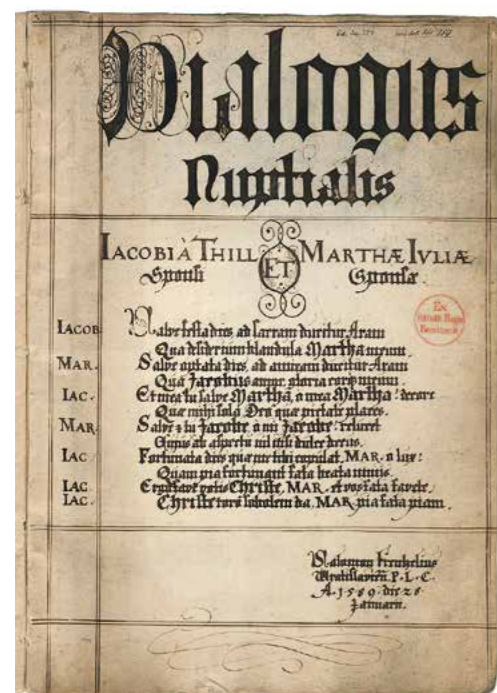 Dialogus
Nuptialis
IACOBI À THILL ET MARTHÆ IVLIÆ
Sponsi Sponsæ.
IACOB Salve festa dies, ad sacram ducitur Aram
Qua desiderium blandula Martha meum.
MAR. Salve optata dies, ad aram ducitur Aram
Qua Jacobus amor, gloria meum.
IAC. Et mea tu salve Martha, o mea Martha! decore
Quæ mihi sola Deo quæ pietate places.
MAR Salve & tu Jacobe o mi Jacobe!
ab aspectu nil nisi dulce decus.
IAC Fortunata dies quæ me tibi copulat, MAR. o lux!
Quam pia fortunant fata beata nimis.
IAC. votis Christe, MAR. et vos fata favete,
IAC. Christe toro sobolem da, MAR. pia fata piam.
Salomon Frenzelius
Wratislavien. P. L. C.
A. 1589. die 28
Januarii.
Ex